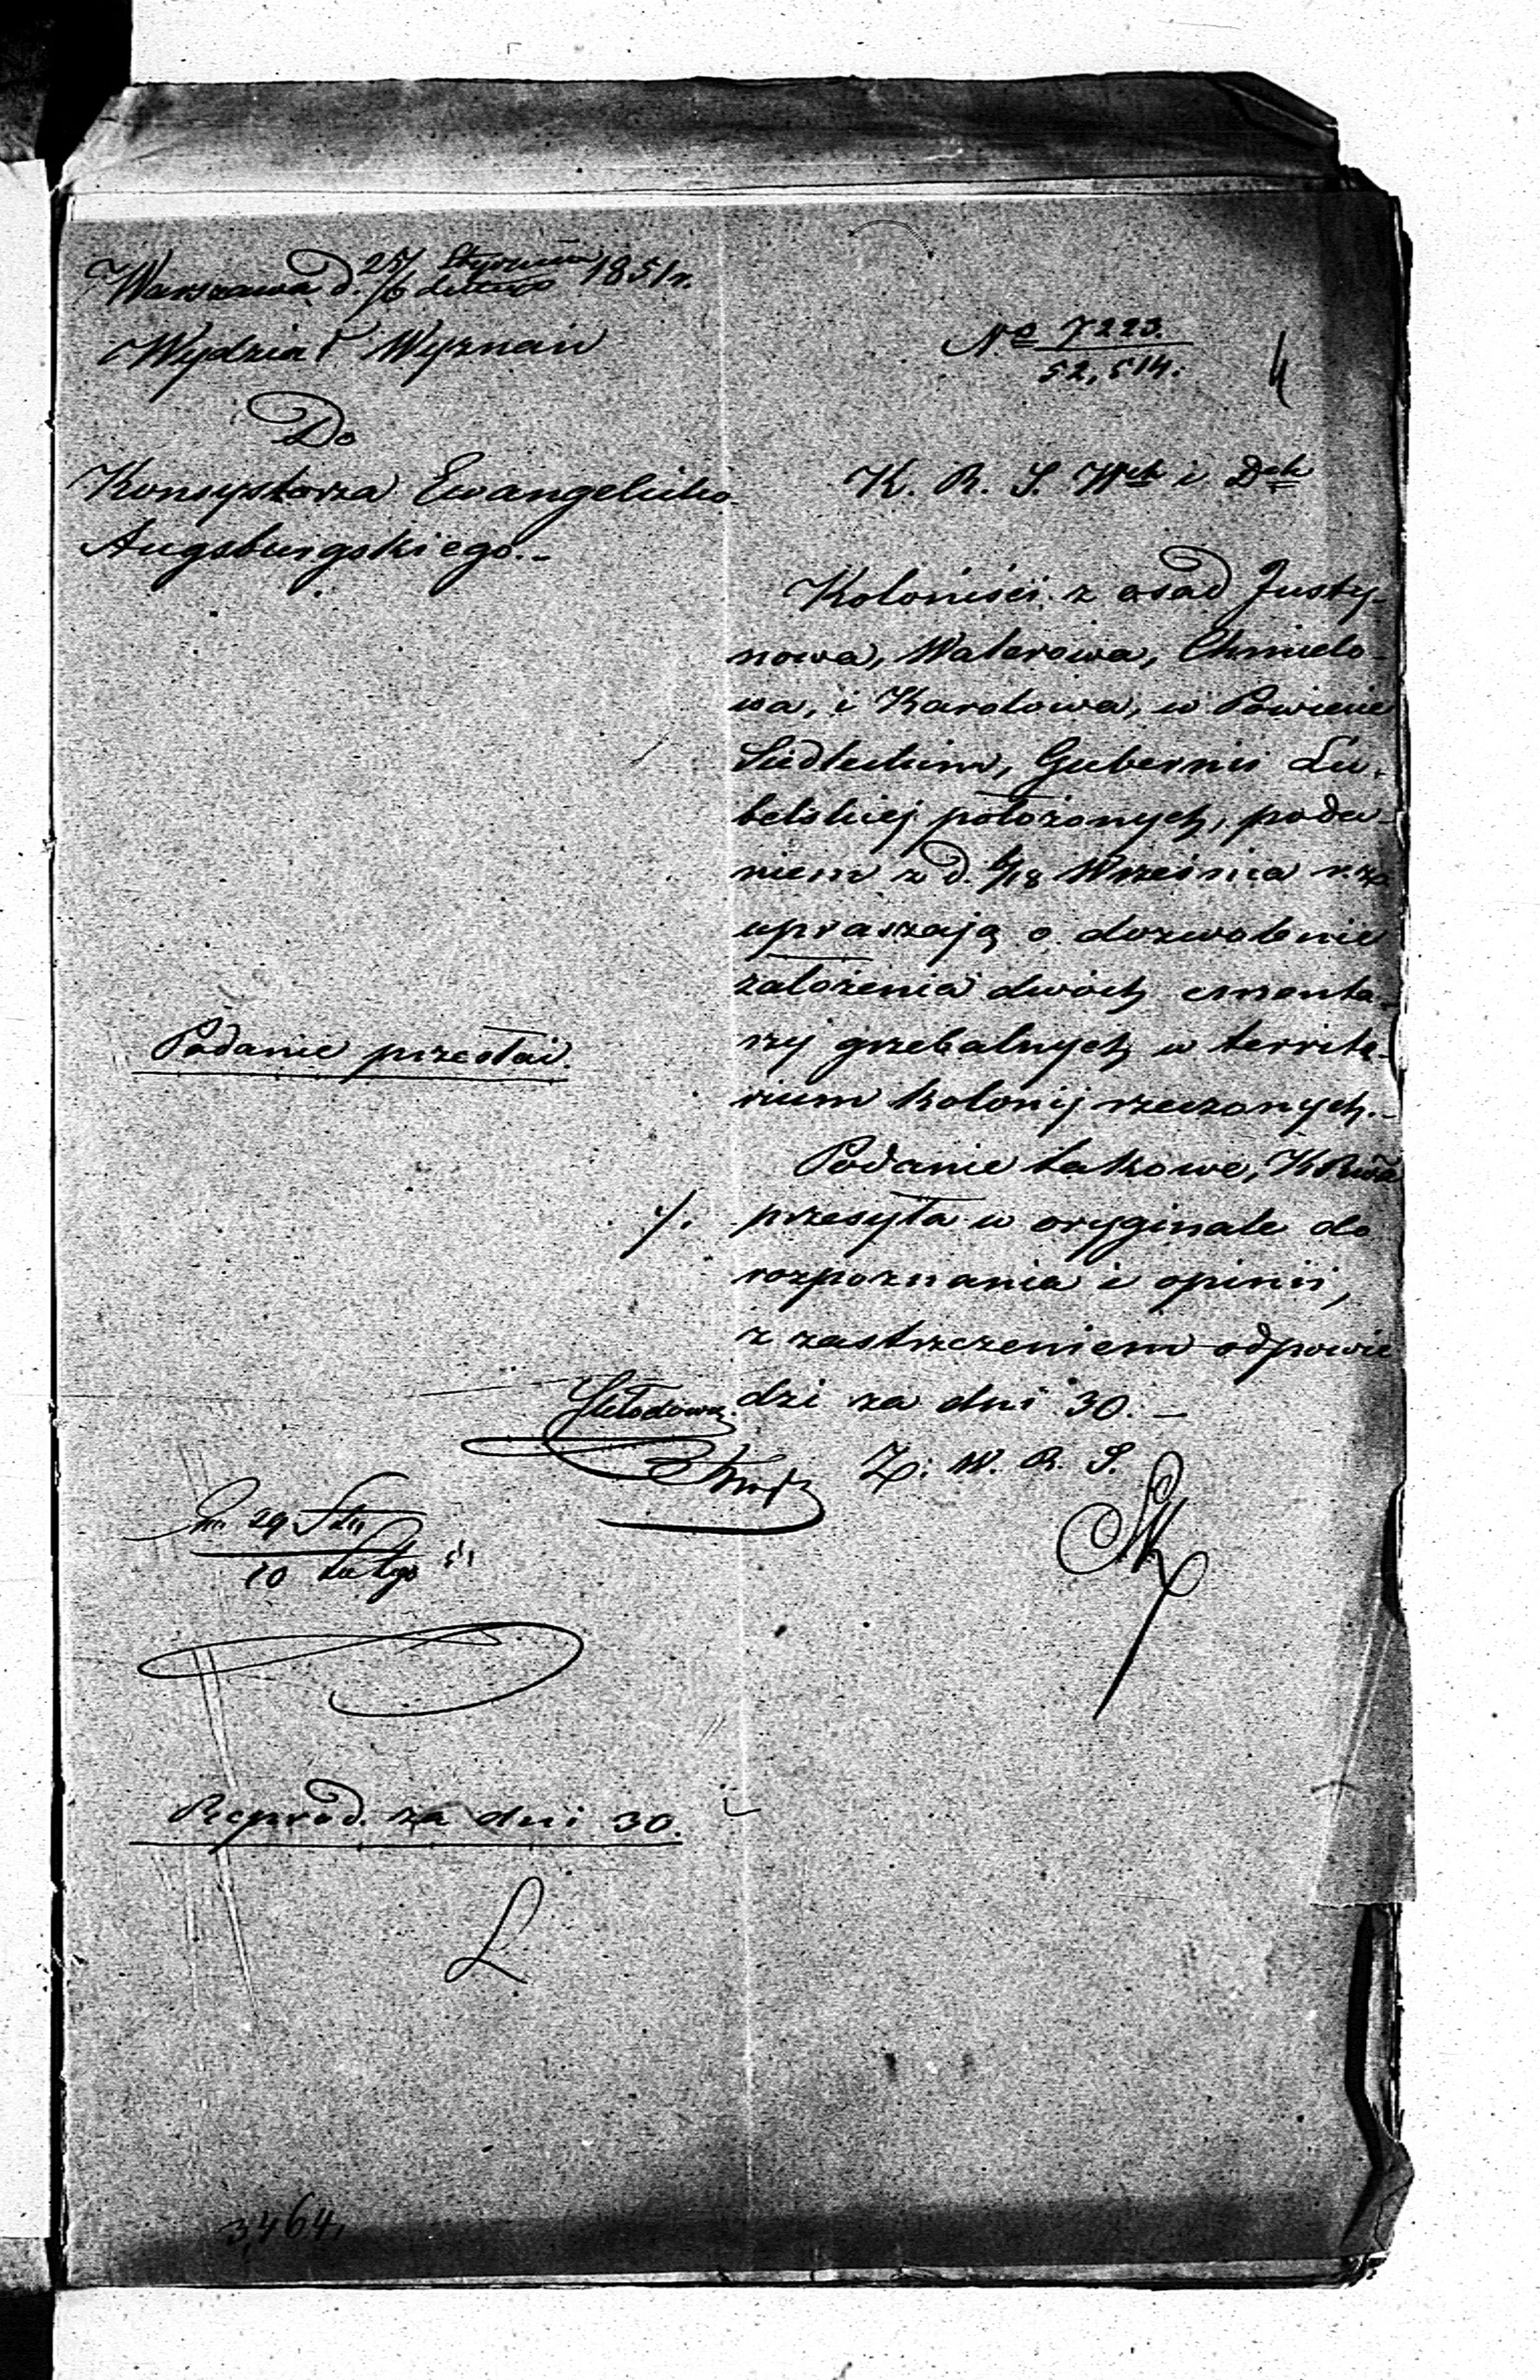 Warszawa d. 25/6 Stycznia/Lutego 1851 r.
Wydział Wyznań
Do
Konsystorza Ewangelicko-
Augsburgskiego.-
No 7223.
52,514.
4
K. R. S. Wch i Dch
Koloniści z osad Justy-
nowa, Waterowa, Chmielo-
wa, i Karolowa, w Powiecie
Siedleckim, Gubernii Lu-
belskiej położonych, poda-
niem z d. 6/18 Września r. z.
upraszają o dozwolenie
założenia dwóch cmenta-
rzy grzebalnych w territo-
rium kolonij rzeczonych.-
Podanie takowe, K Rwa
przesyła w oryginale do
rozpoznania i opinii,
z zastrzeżeniem odpowie
dzi za dni 30. -
Z. W. R. S.
Podanie przesłać.
./.
29 Sty
10 Lutego 51
Reprod. za dni 30.
L
3,464.